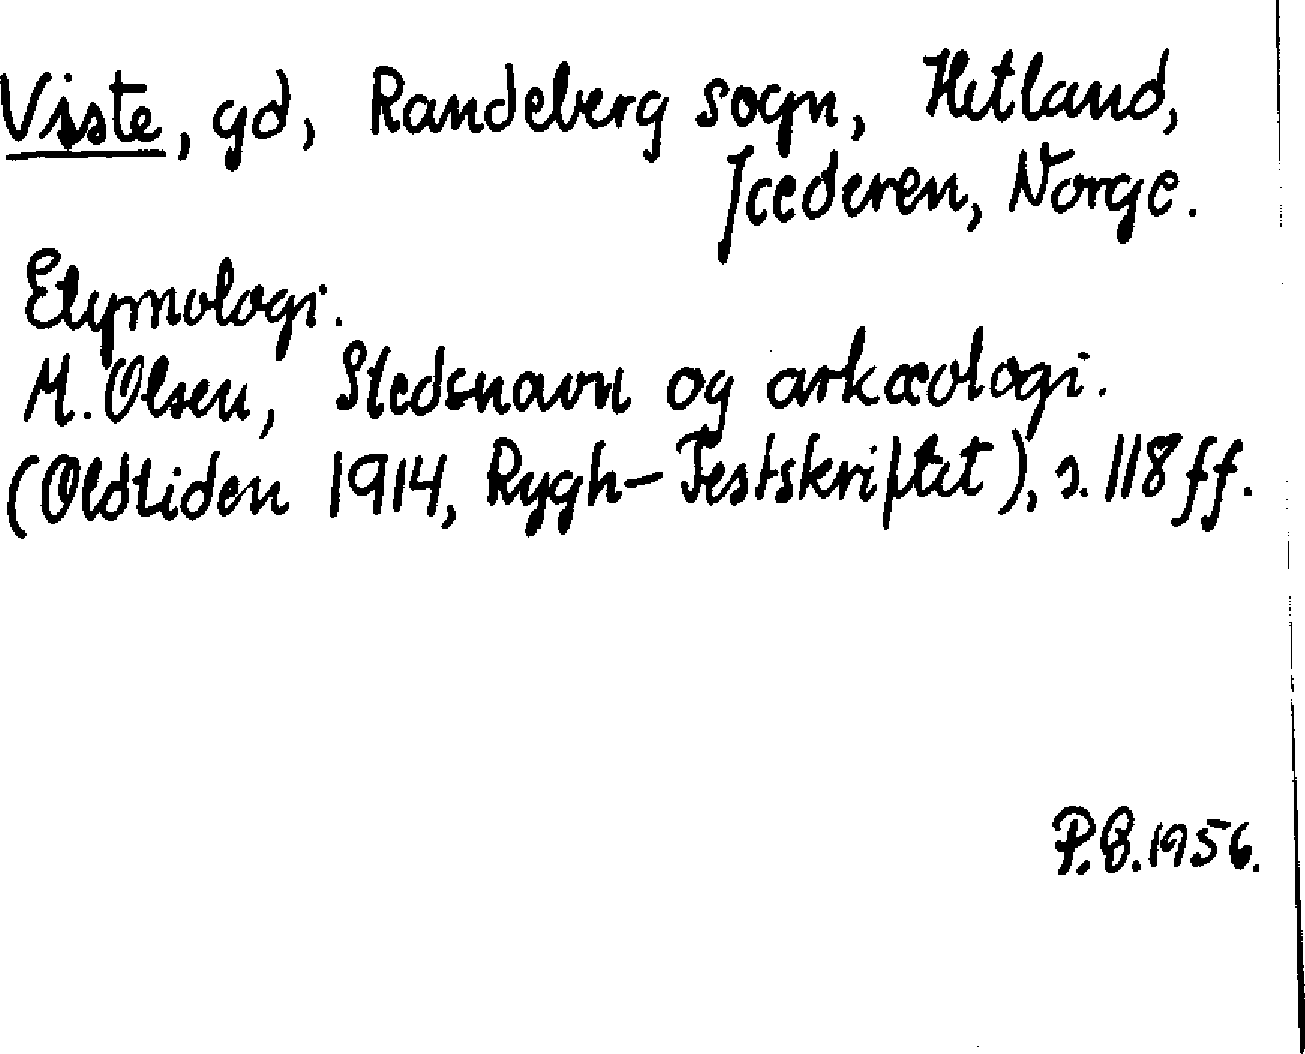 Viste, gd, Randeberg sogn, Hetland,
Jæderen, Norge.
Etymologi.
M. Olsen, Stedsnavn og arkæologi.
(Oldtiden 1914, Rygh-Festskriftet), s. 118 ff.
P.B. 1956.